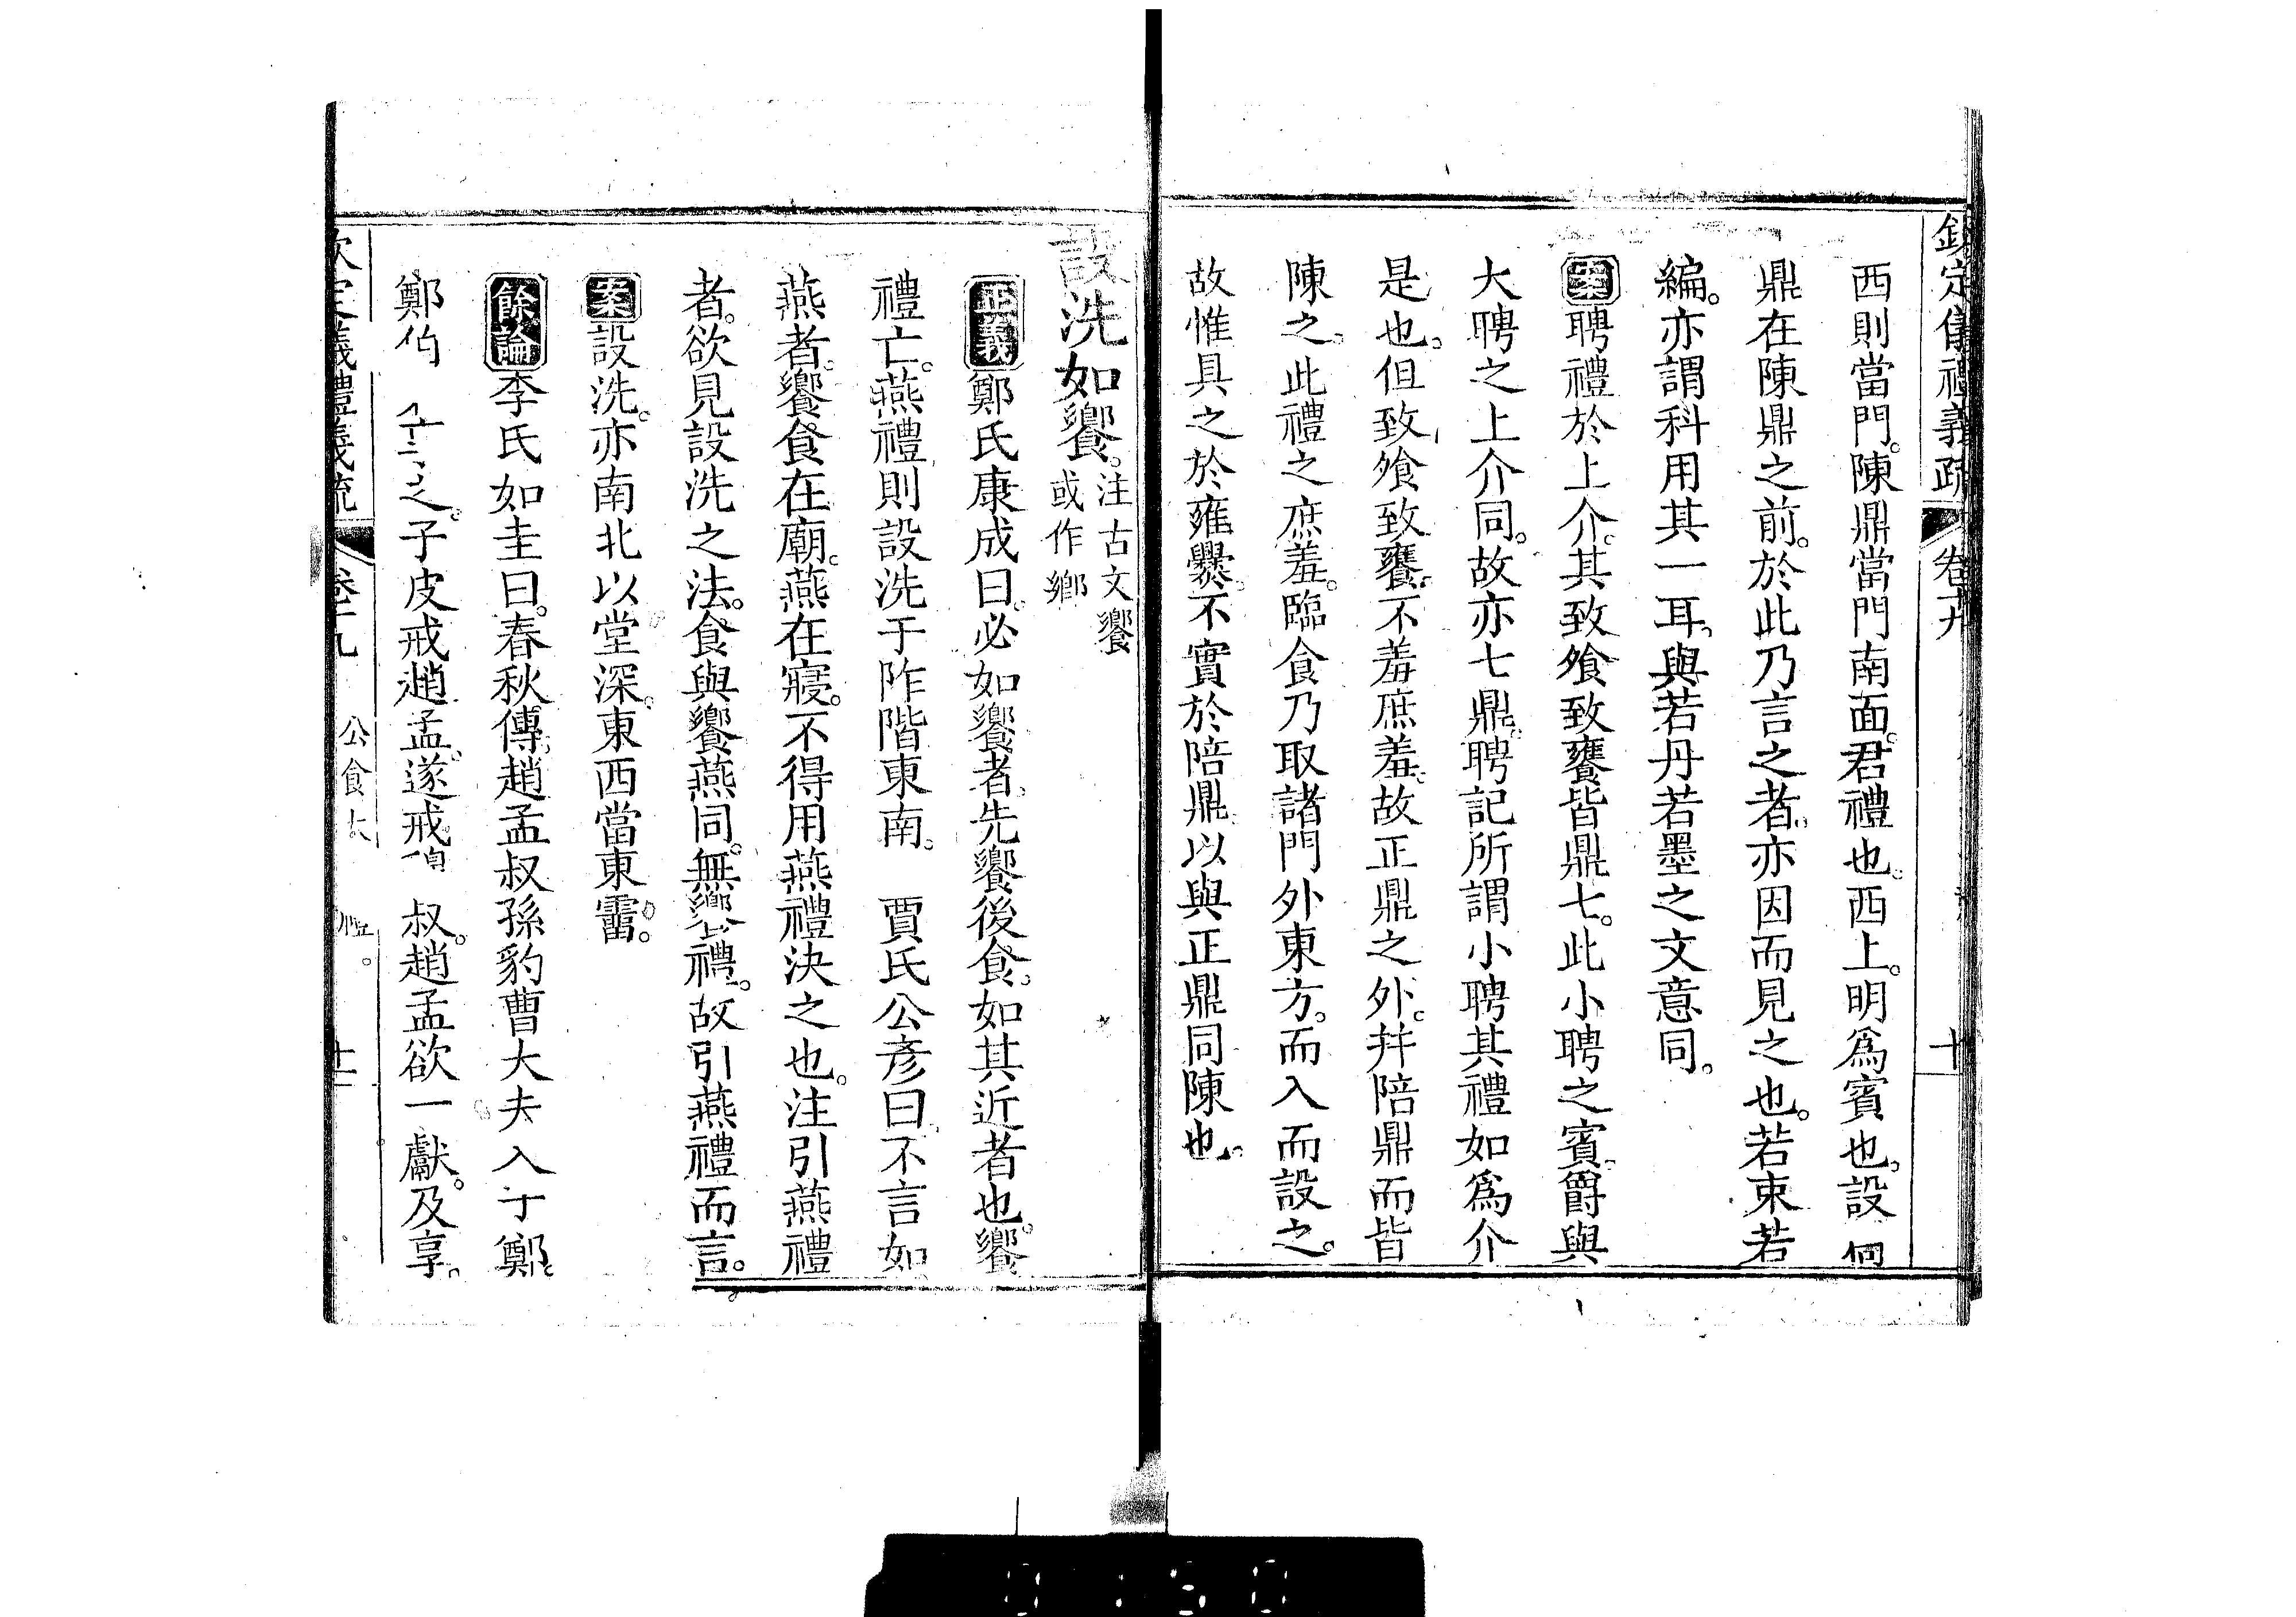 欽定儀禮義疏 卷十九 十
西則當門。陳鼎當門南面。君禮也。西上。明爲賓也。設扃
鼎在陳鼎之前。於此乃言之者。亦因而見之也。若束若
編。亦謂科用其一耳。與若丹若墨之文意同。
案聘禮於上介。其致飧致饔皆鼎七。此小聘之賓。爵與
大聘之上介同。故亦七鼎。聘記所謂小聘其禮如爲介
是也。但致飧致饔。不羞庶羞。故正鼎之外。幷陪鼎而皆
陳之。此禮之庶羞。臨食乃取諸門外東方。而入而設之。
故惟具之於雍爨。不實於陪鼎。以與正鼎同陳也。
設洗如饗。注古文饗
或作鄉
正義鄭氏康成曰。必如饗者。先饗後食。如其近者也。饗
禮亡。燕禮則設洗于阼階東南。 賈氏公彥曰。不言如
燕者。饗食在廟。燕在寢。不得用燕禮決之也。注引燕禮
者。欲見設洗之法。食與饗燕同。無饗禮。故引燕禮而言。
案設洗。亦南北以堂深。東西當東霤。
餘論李氏如圭曰。春秋傳。趙孟叔孫豹曹大夫入于鄭。
鄭伯 之。子皮戒趙孟。遂戒 叔。趙孟欲一獻。及享。
欽定儀禮義疏 卷十九 公食大 禮。 十一